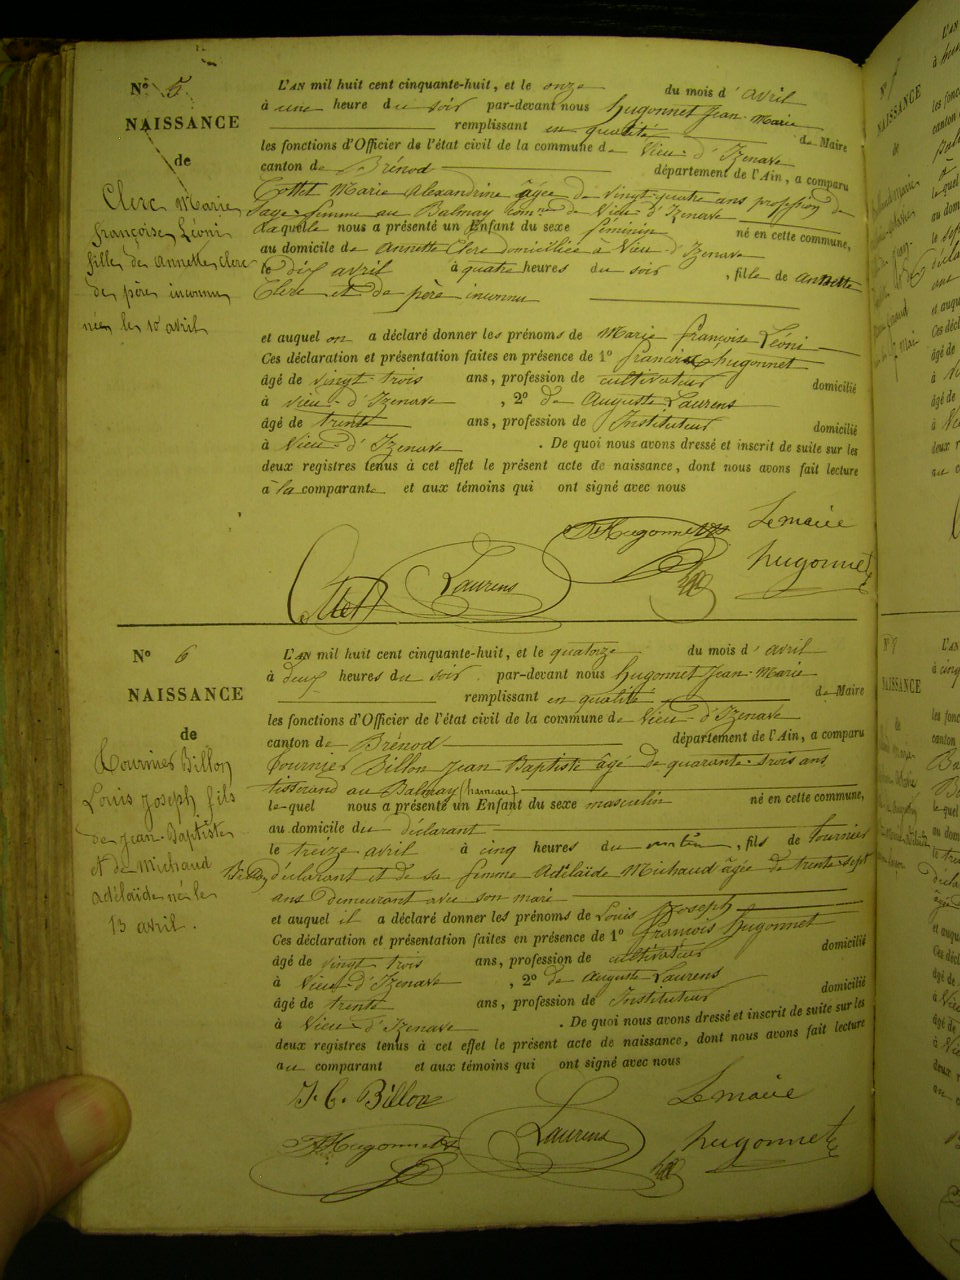 N° 5
NAISSANCE
de
Clerc Marie
françoise Léoni
fille de Annette Clerc
de père inconnu
née le 10 avril
L'AN mil huit cent cinquante-huit, et le onze du mois d'avril
à une heure du soir par-devant nous hugonnet Jean-Marie
remplissant en qualité de Maire
les fonctions d'Officier de l'état civil de la commune de Vieu-d'Izenave
canton de Brénod département de l'Ain, a comparu
Cottet Marie Alexandrine âgée de vingt-quatre ans profession de
sage-femme au Balmay com.ne de Vieu d'Izenave
laquelle nous a présenté un Enfant du sexe féminin né en cette commune,
au domicile de Annette Clerc domiciliée à Vieu-d'Izenave
le dix avril à quatre heures du soir, fille de Annette
Clerc et de père inconnu
et auquel on a déclaré donner les prénoms de Marie françoise Léoni
Ces déclaration et présentation faites en présence de 1° françois hugonnet
âgé de vingt-trois ans, profession de cultivateur domicilié
à Vieu-d'Izenave, 2° de Auguste Laurens
âgé de trente ans, profession de Instituteur domicilié
à Vieu-d'Izenave. De quoi nous avons dressé et inscrit de suite sur les
deux registres tenus à cet effet le présent acte de naissance, dont nous avons fait lecture
à la comparante et aux témoins qui ont signé avec nous
Le maire
F Hugonnet
hugonnet
Cottet Laurens
N° 6
NAISSANCE
de
Tournier Billon
Louis Joseph fils
de Jean-Baptiste
et de Michaud
Adélaïde né le
13 avril.
L'AN mil huit cent cinquante-huit, et le quatorze du mois d'avril
à deux heures du soir par-devant nous hugonnet Jean-Marie
remplissant en qualité de Maire
les fonctions d'Officier de l'état civil de la commune de Vieu-d'Izenave
canton de Brénod département de l'Ain, a comparu
Tournier Billon Jean Baptiste âgé de quarante-trois ans
tisserand au Balmay (hameau)
lequel nous a présenté un Enfant du sexe masculin né en cette commune,
au domicile du déclarant
le treize avril à cinq heures du matin, fils de tournier
Billon déclarant et de sa femme Adélaïde Michaud âgée de trente-sept
ans demeurant avec son mari
et auquel il a déclaré donner les prénoms de Louis Joseph
Ces déclaration et présentation faites en présence de 1° françois hugonnet
âgé de vingt trois ans, profession de cultivateur domicilié
à Vieu-d'Izenave, 2° de Auguste Laurens
âgé de trente ans, profession de Instituteur domicilié
à Vieu-d'Izenave. De quoi nous avons dressé et inscrit de suite sur les
deux registres tenus à cet effet le présent acte de naissance, dont nous avons fait lecture
au comparant et aux témoins qui ont signé avec nous
J. B. Billon Le maire
F Hugonnet Laurens hugonnet